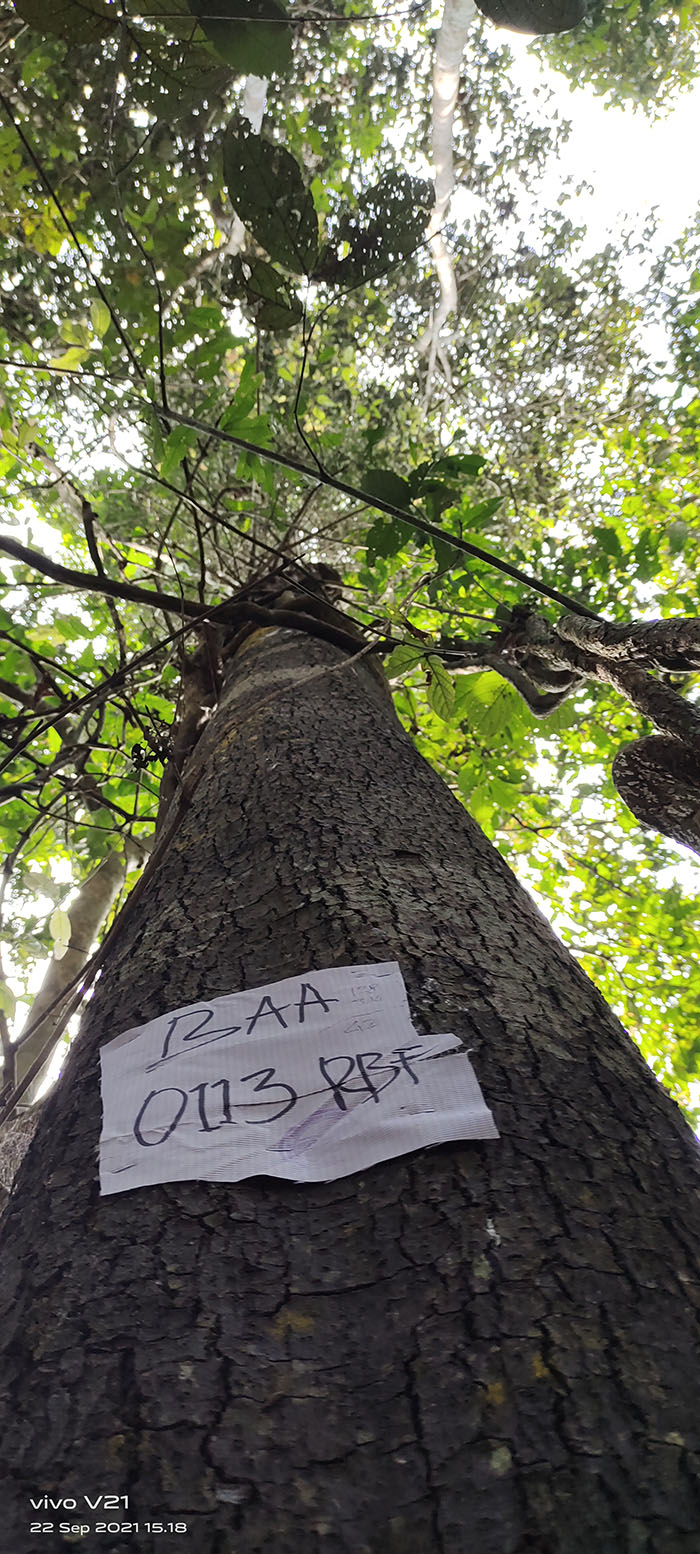 BAA
0113 RBF
vivo V21
22 Sep 2021 15.18